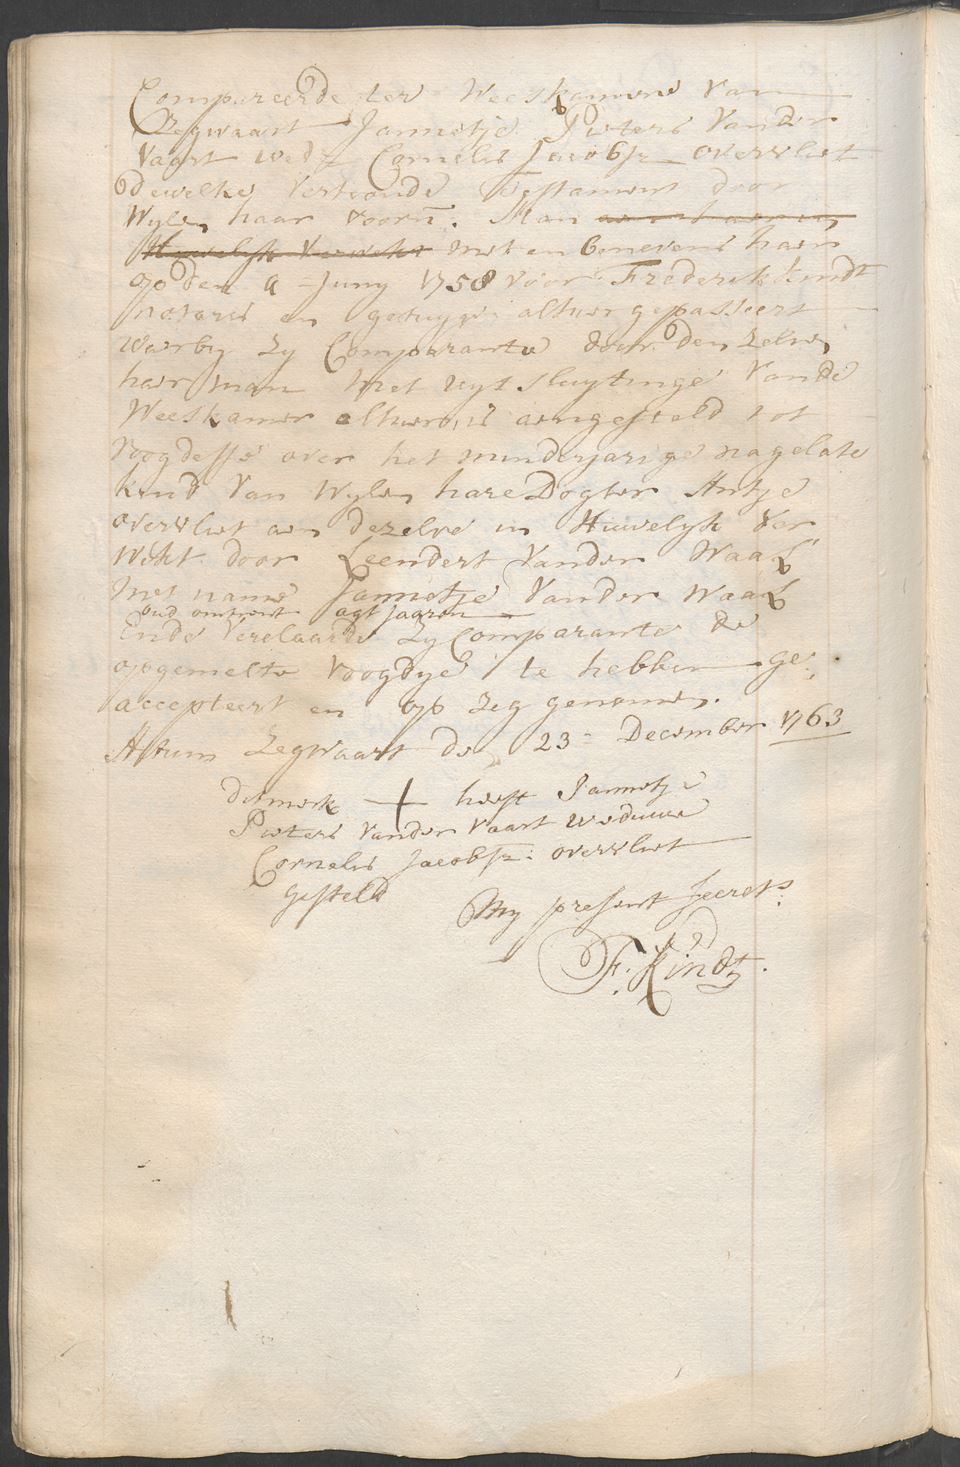 Compareerde ter Weeskamere van
Zegwaart Jannetje Pieters vander
Vaart wed: Cornelis Jacobsz overvliet
dewelke vertoonde Testament door
Wylen haar voorn: Man
Huwelijk verwekt met en benevens haar
op den 9 Juny 1758 voor Frederik Kindt
notaris en getuygen alhier gepasseert
waarby zy Comparante door den zelven
haar man met uytsluytinge vande
Weeskamer alhier, is aengesteld tot
voogdesse over het minderjarige nagelate
kind van wylen hare Dogter Antje
overvliet aen dezelve in Huwelyk ver
wekt door Leendert vander Waal
met name Jannetje vander Waal
oud omtrent agt jaaren
Ende verclaarde zy Comparante de
opgemelte voogdye te hebben ge:
accepteert en op zeg genomen.
Actum Zegwaart den 23 = December 1763
dit merk + heeft Jannetje
Pieters vander Vaart weduwe
Cornelis Jacobsz: overvliet
gesteld
My present secrets.
F. Kindt.